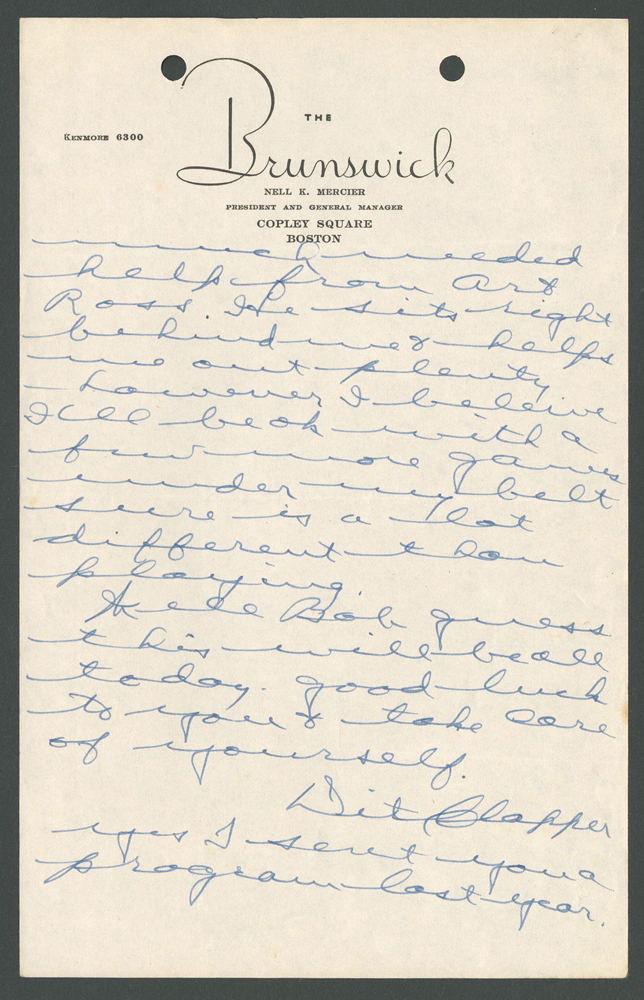 KENMORE 6300
THE
Brunswick
NELL K. MERCIER
PRESIDENT AND GENERAL MANAGER
COPLEY SQUARE
BOSTON
much needed
help from Art
Ross He sits right
behind me & helps
me out plenty
- however I beleive
Ill be ok with a
few more games
under my belt
sure is a lot
different than
playing.
Well Bob guess
this will be all
today. good luck
to you & take care
of yourself.
Dit Clapper
yes I sent you a
program last year.